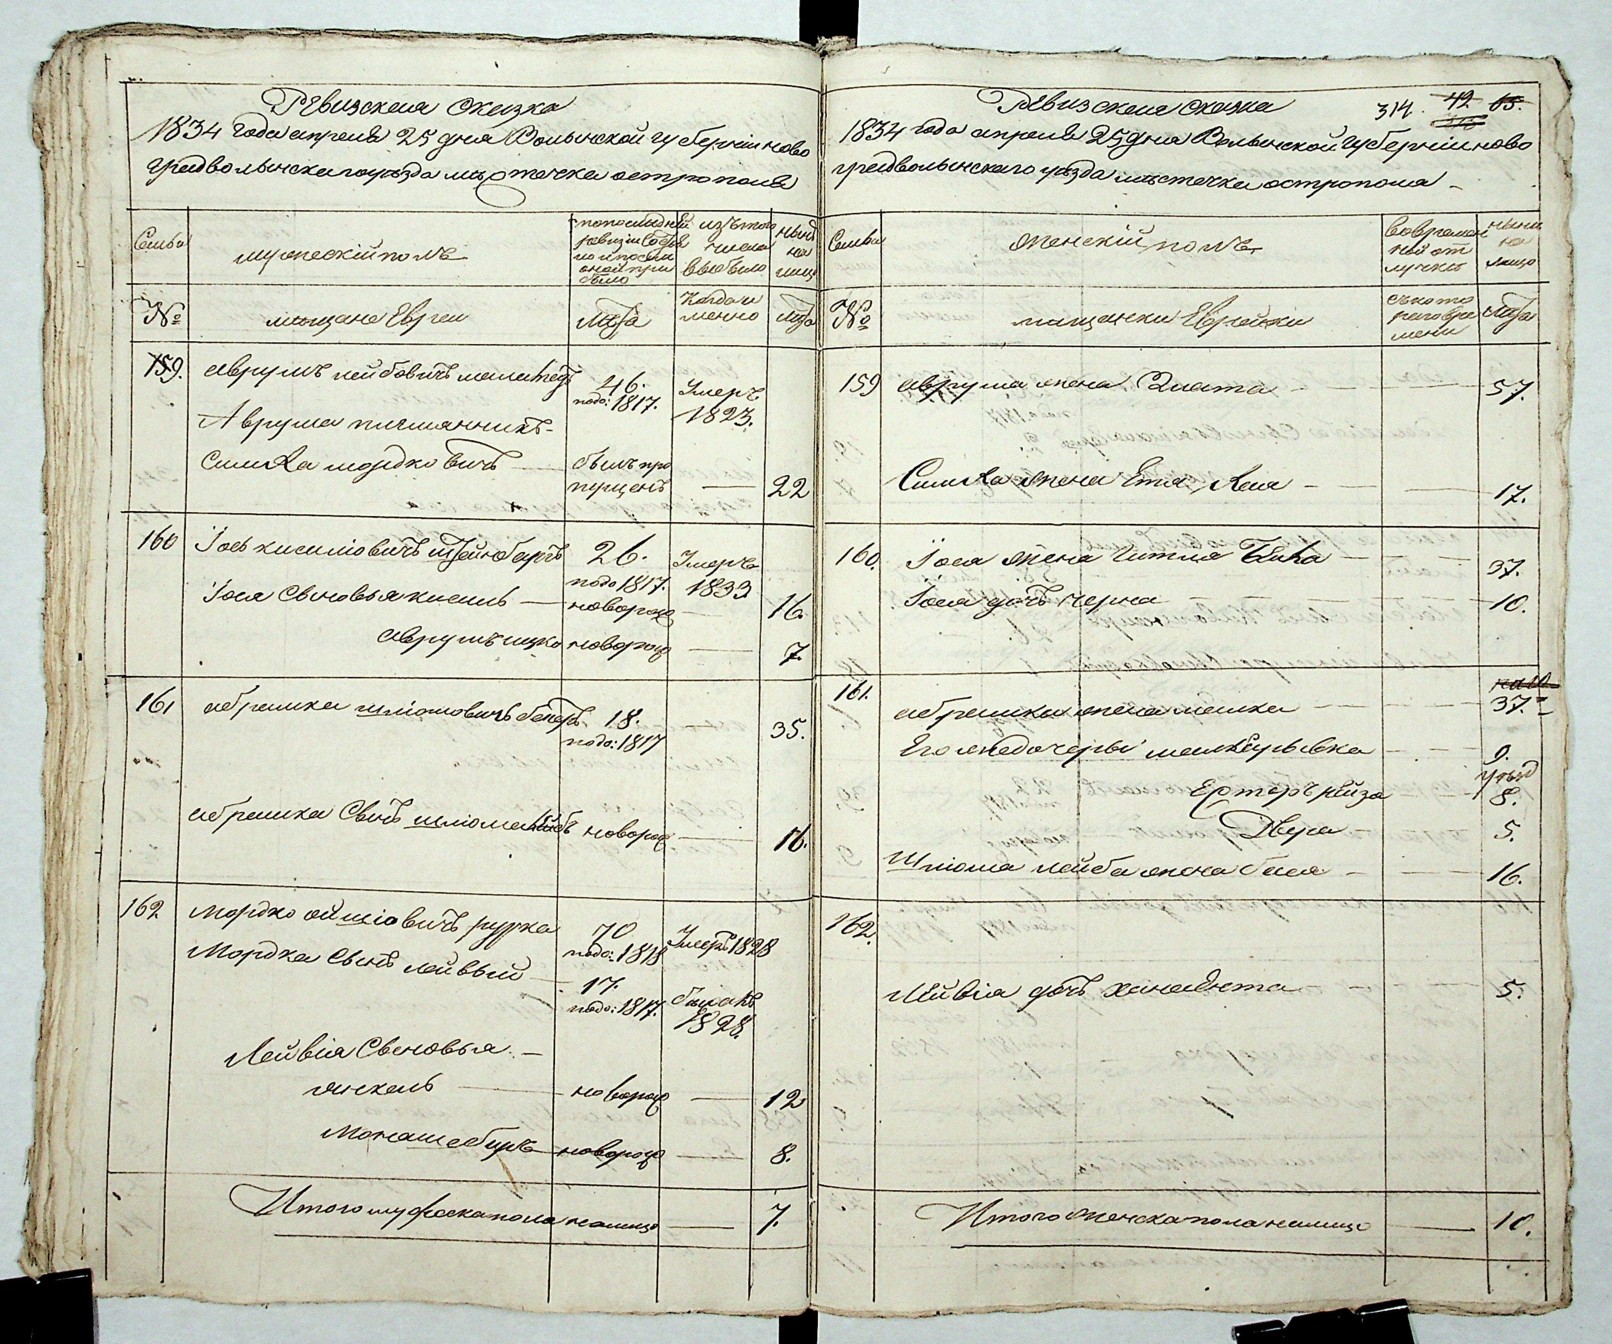 Ревизская сказка
1834 года апреля 25 дня Волынской губернии ново
градволынскаго уезда местечка острополя
Семьи
мужескій полъ
по последней
ревизіи состоя
ло и после
оной при
было
изъ того
числа
выбыло
ныне
на
лицо
№
мещане Евреи
Лета
Когда и
менно
Лета
159.
Аврумъ лейбовичъ
46.
подо: 1817.
Умеръ
1823.
Аврума племянникъ
Симха мордковичъ
былъ про
пущенъ
22
160
Іось кисиліовичъ штейнбергъ
26.
подо 1817.
Умеръ
1833
Іося Сыновья кисиль
новорож
16.
Аврумъ ицко новорож
7.
161
абрашка шліомовичъ
18.
подо: 1817
35.
абрашка Сынъ шліома лейбъ новорож
16.
162
мордко овшіовичъ рурка
70
подо: 1818
Умеръ 1828
Мордка Сынъ лейвый
17.
подо: 1817.
1828.
Лейвія Сыновья
янкель
новорож
12
Монаше беръ новорож
8.
Итого мужеска пола налицо
7.
Ревизская сказка
314.
42
65.
1834 года апреля 25 дня Волынской губерніи ново
градволынскаго уезда местечка острополя
Семьи
женскій полъ
Вовремен
ной от
лучке
ныне
на
лицо
№
мещанки Еврейки
съ кото
раго вре
мени
Лета
159
аврума жена Злата
57.
Симха жена Етя Лея
17.
160.
Іося жена Гитля
37.
Іося дочь черна
10.
161.
абрашка жена малка
37.
Его же дочери
9.
Естеръ рейза
8.
Двуся
5.
Шліома лейба жена бася
16.
162.
Лейвія дочь хана Ента
5.
Итого женска пола налицо
10.